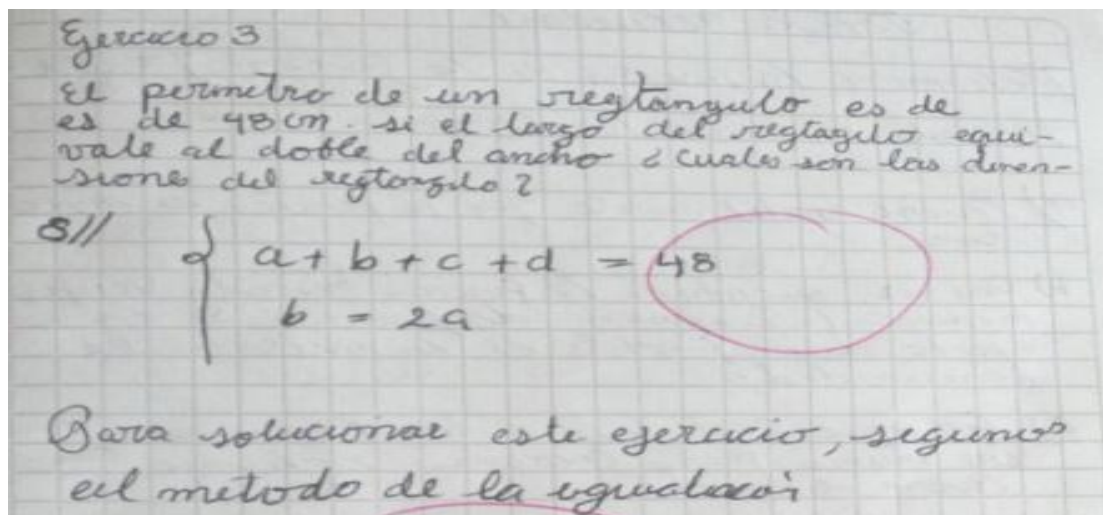 Ejercicio 3
El perimetro de un regtangulo es de
es de 48 cm. si el largo del regtagulo equi-
vale al doble del ancho ¿ cuales son las dimen-
sione del regtongulo ?
S//
a + b + c + d = 48
b = 2a
Para solucionar este ejercicio, seguimos
el metodo de la igualacoi